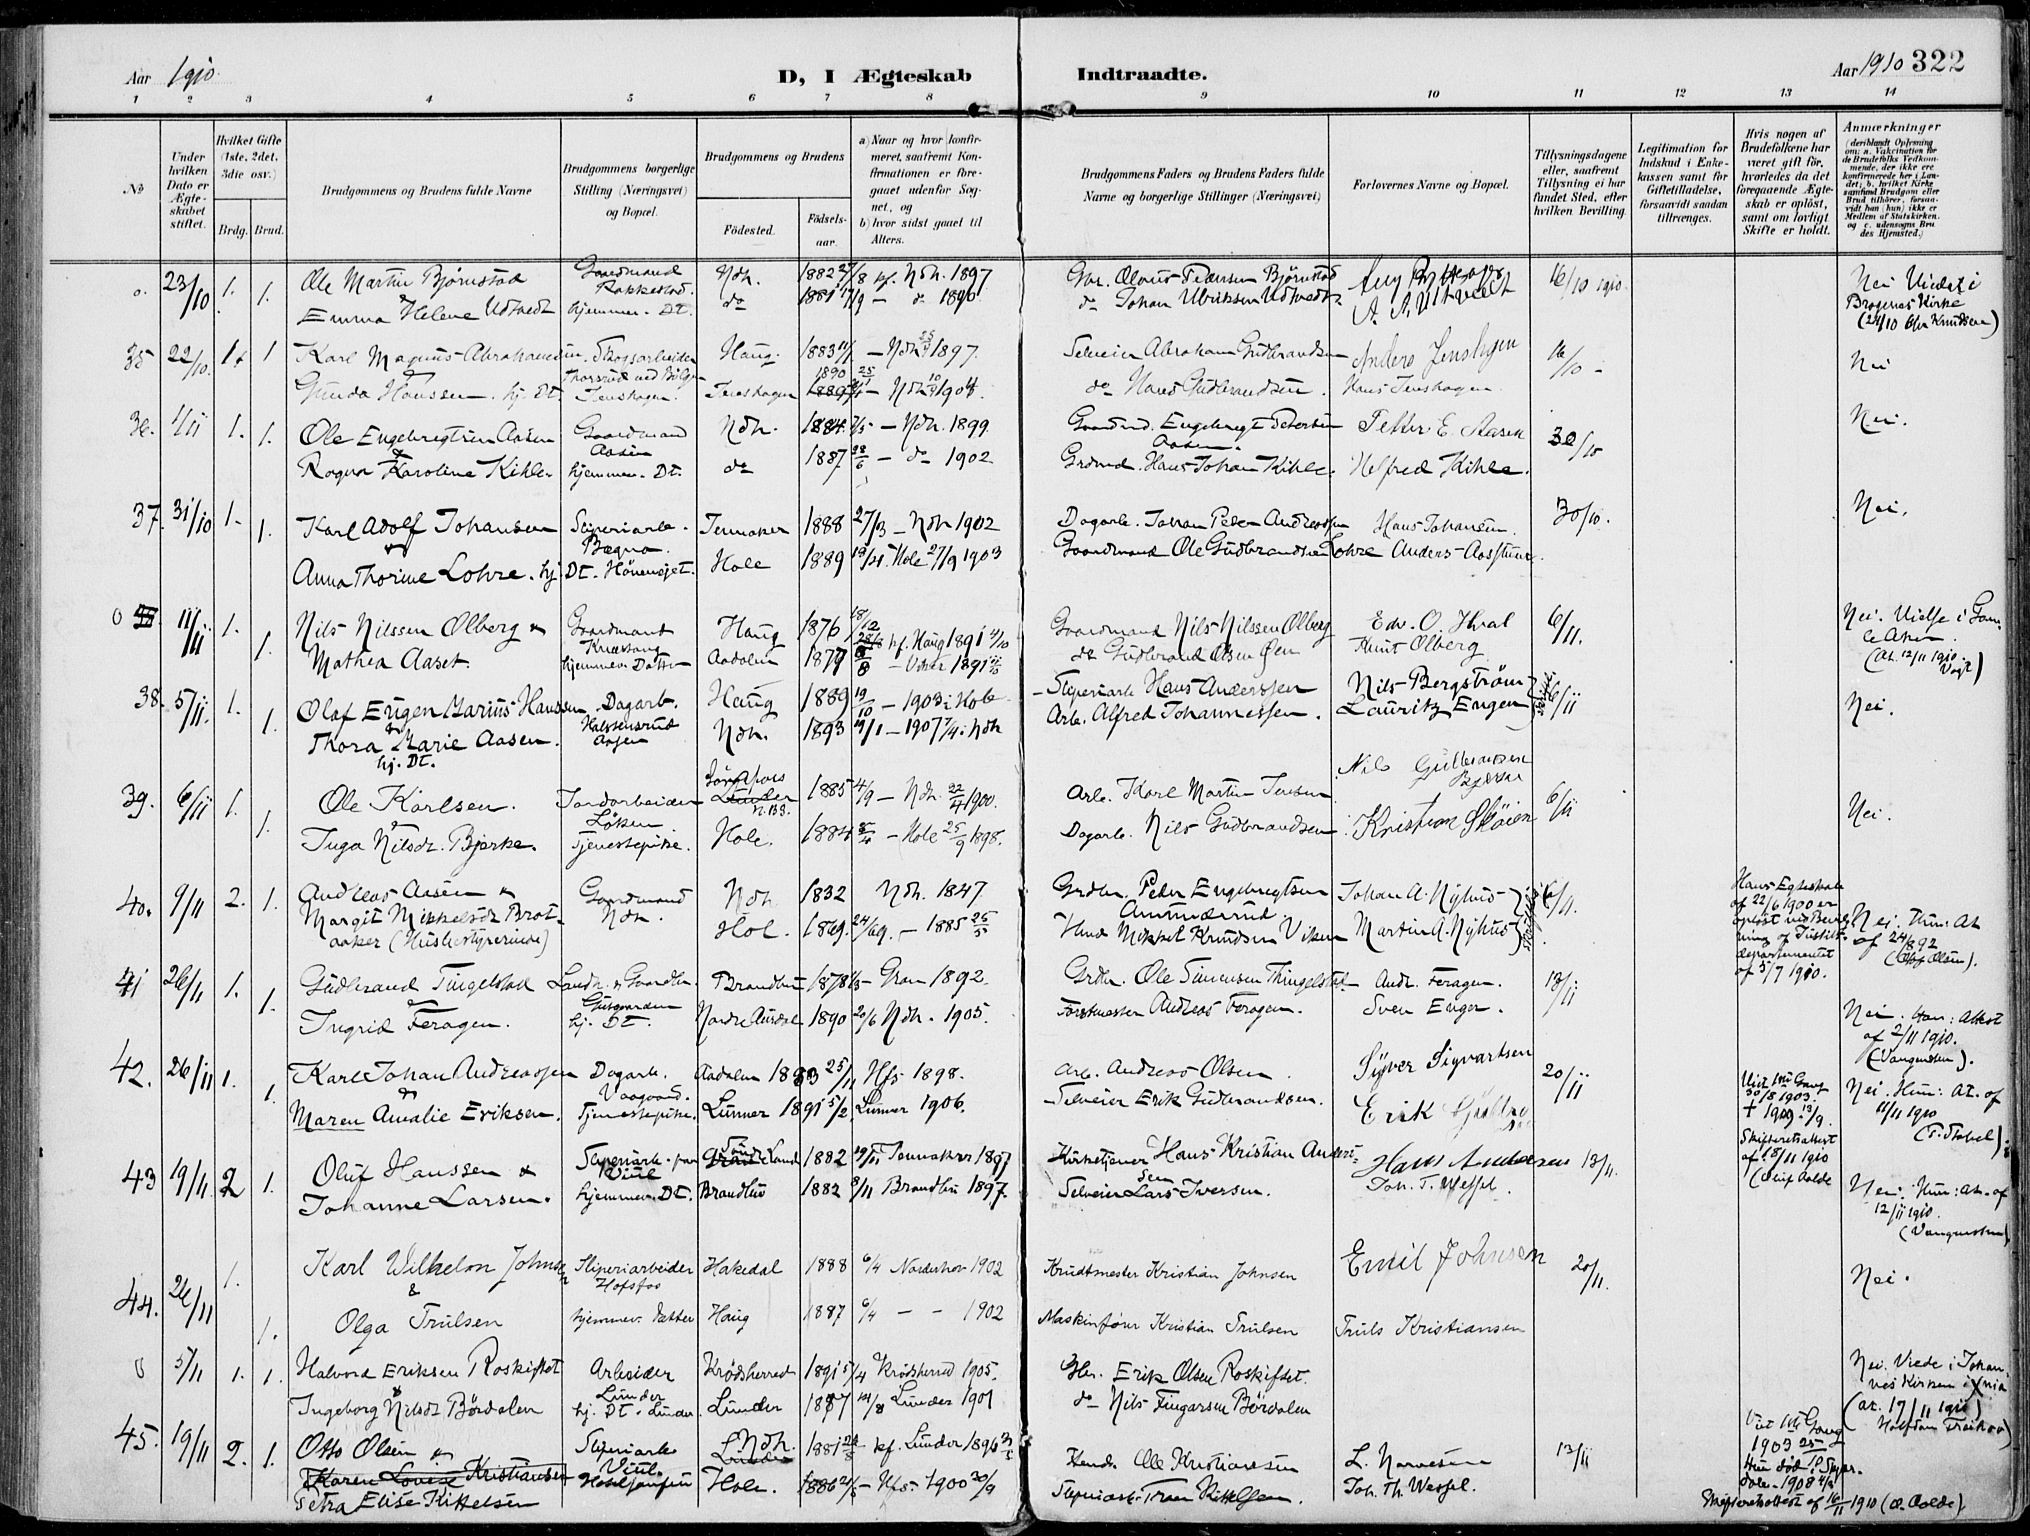 Aar 1910.
D, I Ægteskab
Indtraadte.
Aar 1910 322
1 2 3 4 5 6 7 8 9 10 11 12 13 14
No
Under hvilken Dato er Ægteskabet stiftet.
Hvilket Gifte (1ste, 2det, 3die osv.)
Brdg. Brud.
Brudgommens og Brudens fulde Navne
Brudgommens borgerlige Stilling (Næringsvei) og Bopæl.
Brudgommens og Brudens
Fødested.
Fødselsaar.
a) Naar og hvor konfirmeret, saafremt Konfirmationen er foregaaet udenfor Sognet, og
b) hvor sidst gaaet til Alters.
Brudgommens Faders og Brudens Faders fulde Navne og borgerlige Stillinger (Næringsvei)
Forlovernes Navne og Bopæl.
Tillysningsdagene eller, saafremt Tillysning ei har fundet Sted, efter hvilken Bevilling.
Legitimation for Indskud i Enkekassen samt for Giftetilladelse, forsaavidt saadan tiltrænges.
Hvis nogen af Brudefolkene har været gift før, hvorledes da det foregaaende Ægteskab er opløst, samt om lovligt Skifte er holdt.
Anmærkninger
(deriblandt Oplysning om: a. Vakcination for de Brudefolks Vedkommende, der ikke ere konfirmerede her i Landet; b. hvilket Kirkesamfund Brudgom eller Brud tilhører, forsaavidt han (hun) ikke er Medlem af Statskirken, og c. udensogns Brudes Hjemsted.)
o. 23/10 1. 1. Ole Martin Bjørnstad Gaardmand Rakkestad. Ndh. 1882 27/8 kf. Ndh. 1897 Gbr. Olavus Pedersen Bjørnstad 16/10 1910. Nei Viedet i
Emma Helene Udtvedt hjemmev. Dt. do 1881 17/9 – do 1896 do Johan Ulriksen Udtvedt Bragenes Kirke
(24/10 Chr Knudsen)
35 22/10. 1. 1 Karl Magnus Abrahamsen. Skogsarbeider Haug. 1883 11/1 – Ndh 1897. Selveier Abraham Gudbrandsen Anders Jenshagen 16/10 – Nei
Gunda Hanssen. hj. Dt Jenshagen. Jenshagen 1890 – Ndh 1904. do Hans Gudbrandsen. Hans Jenshagen.
36. 1/11 1. 1. Ole Engebregtsen Aasen Gaardmand Aasen Ndh. 1884. 7/5 – Ndh. 1899 Gaardmd. Engebregt Petersen Aasen. Petter E. Aasen 30/10 Nei.
Ragna Karoline Kihle. hjemmev. Dt. do 1887 28/6 – do 1902 Grdmd. Hans Johan Kihle. Helfred Kihle.
37. 31/10 1. 1. Karl Adolf Johansen Sliperiarb. Bægna. Jevnaker 1888 27/3 – Ndh 1902 Dagarb. Johan Peter Andreassen Hans Johansen 30/10. Nei.
Anna Thorine Lohre. hj. Dt. Hönensjet. Hole 1889 Hole 27/9 1903 Gaardmand Ole Gudbrandsen Lohre Anders
0 11/11 1. 1. Nils Nilssen Olberg & Gaardmand Haug 1876 18/12 kf. Haug 1891 Gaardmand Nils Nilssen Olberg Edv. O. Hval 6/11. Nei. Vielse i Gamle Aker.
Mathea Aaset. hjemmev. Datter Aadalen 1877 – Viker 1891 do Gudbrand Olsen Øen Knut Olberg (At. 12/11 1910. Vogt)
38. 5/11. 1. 1. Olaf Eugen Marius Hanssen. Dagarb. Halstensrud Haug 1889 19/10 – 1903 i Hole – Sliperiarb Hans Anderssen Nils Bergström 6/11 Nei.
Thora Marie Aasen. hj. Dt. Aasen Ndh. 1893 19/1 – 1907 7/4 i Ndh Arb. Alfred Johannessen. Lauritz Engen
39. 6/11 1. 1. Ole Karlsen. Jordarbeider Løken 1885 4/9 – Ndh. 22/4 1900. Arb. Karl Martin Jensen Nils Gulbrandsen Bjerke 6/11 Nei.
Inga Nilsdt. Bjerke. Tjenestepike. Hole. 1884 – Hole 25/9 1898. Dagarb. Nils Gudbrandsen Kristian Skøien
40. 9/11 2. 1. Andreas Aasen & Gaardmand Ndh. Ndh 1832 Ndh. 1847 Grdbr. Peder Engebregtsen Amundsrud. Johan A. Nyhus 6/11. Hans Egteskab af 22/6 1900 er opløst ved Bevilgning af Justitsdepartementet af 5/7 1910. Nei. Hun: At af 24/8 92 (Olsen).
Margit Mikkelsdt. Brotaaker (Husbestyrerinde) Hol. 1869. – 1885 25/5 Hmd Mikkel Knudsen Viken Martin A. Nyhus
41 26/11 1. 1. Gudbrand Tingelstad Landh. & Gaardbr. Brandbu 1878 – Gran 1892. Grdbr. Ole Simensen Thingelstad Andr. Feragen. 13/11 Nei. Han: Attest af 2/11 1910. (Vangensten).
Ingrid Feragen. hj. Dt. Nordre Aurdal 1890 20/6 Ndh. 1905. Forstmester Andreas Feragen. Sven Enger.
42. 26/11 1. 1. Karl Johan Andreassen Dagarb. Vaagaard. Aadalen 1883 25/11 Hfs 1898. Arb. Andreas Olsen Syver Sigvartsen 20/11 Nei. Hun: At. af 11/11 1910
Maren Amalie Eriksen. Tjenestepike. Lunner 1891 5/2 Lunner 1906. Selveier Erik Gudbrandsen. Erik
43 19/11 2 1. Oluf Hanssen & Sliperiarb. paa Viul Søndre Land 1882 Jevnaker 1897 Kirketjener Hans Kristian Andersen Hans Andersen 13/11. Viet 1ste Gang 30/8 1903. † 1909 13/9. Skifteretsattest af 18/11 1910 (Aalde
Johanne Larsen. hjemmev. Dt. Brandbu 1882 8/11 Brandbu 1897. Selveier Lars Iversen. Joh. T. Wessel. Nei. Hun: At. af 12/11 1910. (Vangensten)
44. 26/11 1. 1. Karl Wilhelm Johnsen Sliperiarbeider Hofsfos Hakedal 1888 6/4 Norderhov 1902 Krudtmester Kristian Johnsen Emil Johnsen 20/11. Nei.
&
Olga Trulsen hjemmev. Datter Haug 1887 6/4 – – 1902 Maskinfører Kristian Trulsen Truls Kristiansen
0 5/11 1. 1. Halvord Eriksen Roskiftet Arbeider Lunder Krødsherred 1891 5/4 Krødsherred 1905. Gbr. Erik Olsen Roskiftet. Nei. Viede i Johannes Kirken i Xnia
Ingeborg Nilsdt Børdalen hj. Dt. Lunder Lunder 1887 Lunder 1901 do Nils Fingarsen Børdalen (at. 17/11 1910)
45. 19/11 2. 1. Otto Olsen & Sliperiarb. Viul Ndh. Lunder 1881 kf. Lunder 1896 Ole Kristiansen L. Narvesen 13/11 Viet 1ste Gang 1903 25/10 Hun død i 1908
Karen Lovise Kristiansen
Petra Elise Kittelsen Hole. 1886 – Hfs. 1900 30/9 Sliperiarb. Kittelsen. Joh. Th. Wessel. Skifteretsattest af 16/11 1910 (Aalde)